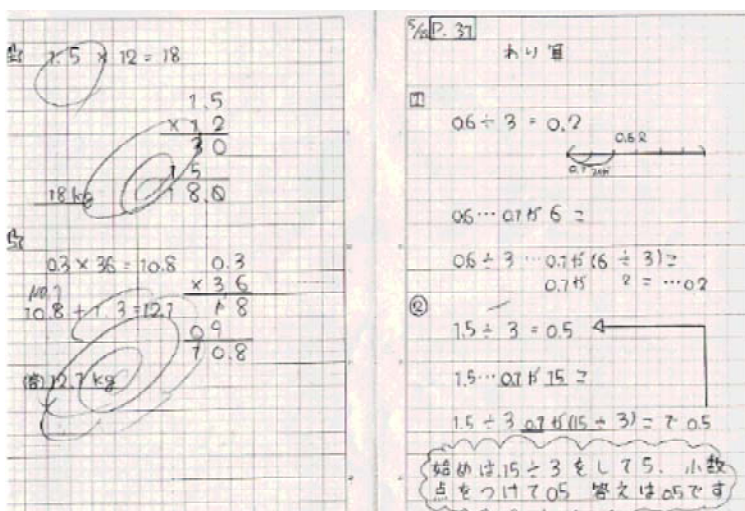 1.5 × 12 = 18
1.5
× 12
30
15
18.0
18kg
0.3 × 36 = 10.8
0.3
× 36
18
09
10.8
(答)12.1kg
5/
P. 31
わり算
①
0.6 ÷ 3 = 0.2
0.6ℓ
0.6 … 0.1が 6 こ
0.6 ÷ 3 … 0.1が(6 ÷ 3)こ
0.1が 2 こ … 0.2
②
1.5 ÷ 3 = 0.5
1.5 … 0.1が 15 こ
1.5 ÷ 3 0.1が(15 ÷ 3)こ で 0.5
始めは、15÷3をして5、小数
点をつけて05 答えは05です